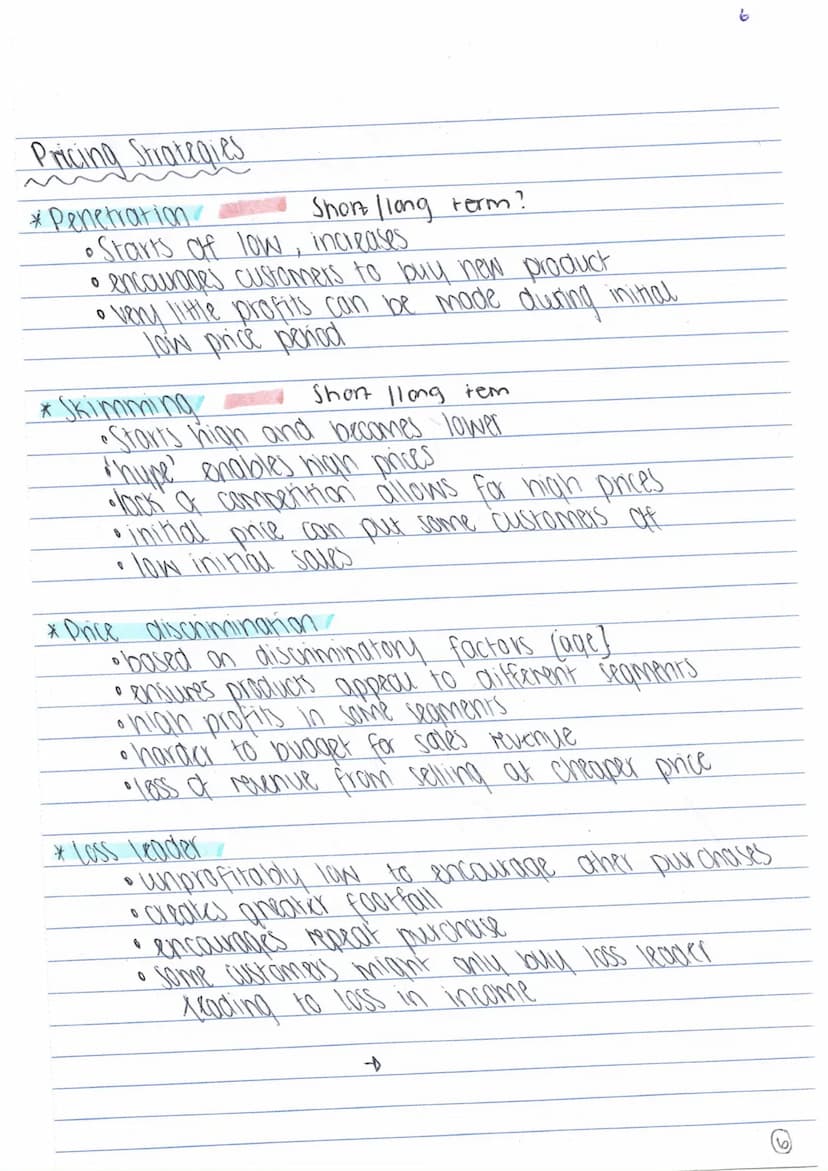 6
Pricing Strategies
* Penetration Short/long term?
• Starts off low, increases
• encourages customers to buy new product
• very little profits can be made during initial
low price period
* Skimming Short/long tem
• Starts high and becomes lower
• 'hype' enables high prices
• lack of competition allows for high prices
• initial price can put some customers off
• low initial sales
* Price discrimination
• based on discriminatory factors (age]
• ensures products appeal to different segments
• high profits in some segments
• harder to budget for sales revenue
• loss of revenue from selling at cheaper price
* loss leader
• unprofitably low to encourage other purchases
• creates greater footfall
• encourages repeat purchase
• some customers might only buy loss leader
leading to loss in income
6